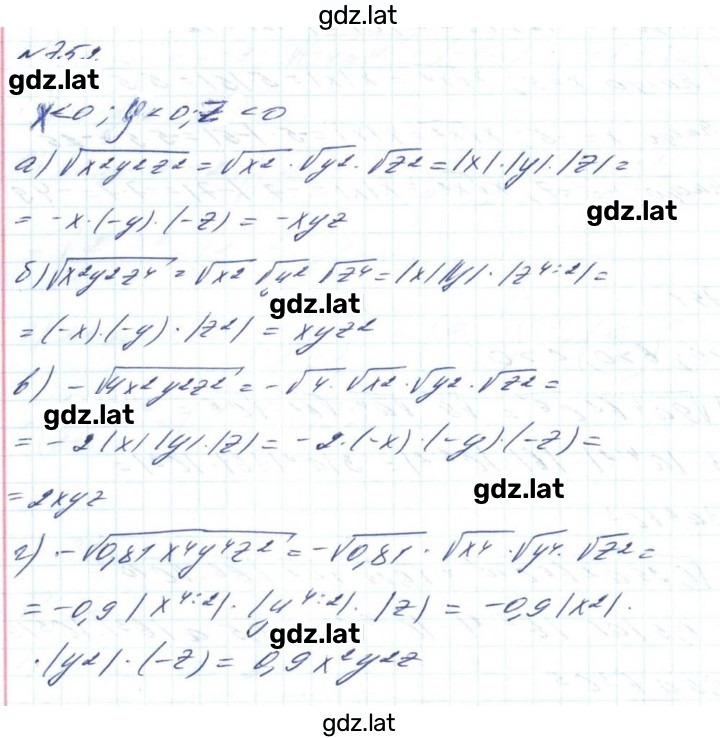 gdz.lat
№ 7.51.
gdz.lat
x<0; y<0; z<0
а) √x²y²z² = √x² · √y² · √z² = |x| · |y| · |z| =
gdz.lat
= -x · (-y) · (-z) = -xyz
б) √x²y²z⁴ = √x² √y² √z⁴ = |x| |y| · |z⁴:²| =
gdz.lat
= (-x) · (-y) · |z²| = xyz²
в) -√4x²y²z² = -√4 · √x² · √y² · √z² =
gdz.lat
= -2 |x| |y| · |z| = -2 · (-x) · (-y) · (-z) =
gdz.lat
= 2xyz
г) -√0,81x⁴y⁴z² = -√0,81 · √x⁴ · √y⁴ · √z² =
= -0,9 |x⁴:²| · |y⁴:²| · |z| = -0,9 |x²| ·
gdz.lat
· |y²| · (-z) = 0,9x²y²z
gdz.lat